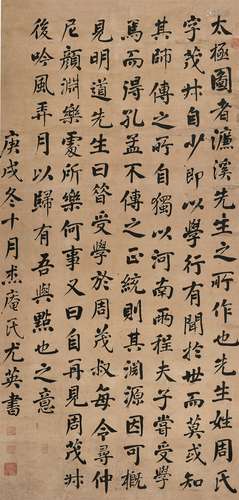 太極圖者濂溪先生之所作也先生姓周氏
字茂叔自少即以學行有聞於世而莫或知
其師傳之所自獨以河南兩程夫子嘗受學
焉而得孔孟不傳之正統則其淵源因可概
見明道先生曰昔受學於周茂叔每令尋仲
尼顏淵樂處所樂何事又曰自再見周茂叔
後吟風弄月以歸有吾與點也之意
庚戌冬十月杰庵氏尤英書